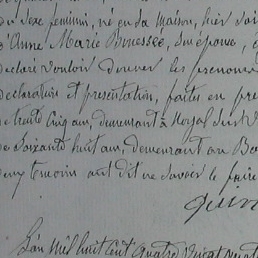 du sexe féminin, né en sa maison, hier soir
d'Anne Marie Bruessec, son épouse,
déclaré vouloir donner les prénoms
déclaration et présentation, faites en pré
de trente cinq ans, demeurant à
de soixante huit ans, demeurant au
témoins ont dit ne savoir le faire
L'an mil huit cent quatre vingt